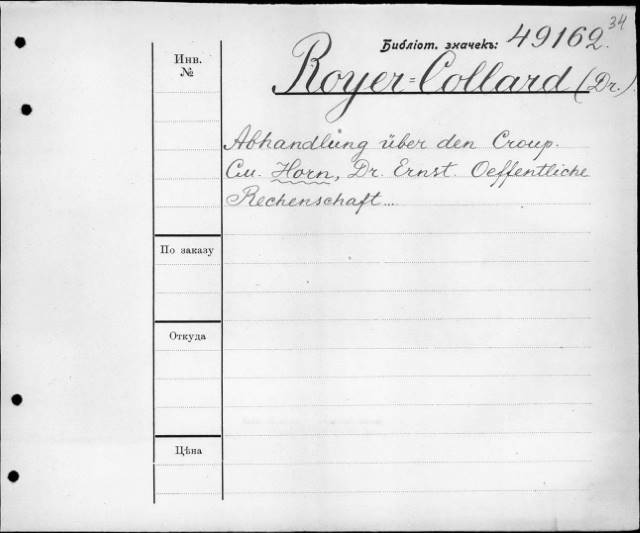 34
Библіот. значекъ: 49162.
Инв.
№
Royer=Collard (Dr.).
Abhandlung über den Croup.
См. Horn, Dr. Ernst. Oeffentliche
Rechenschaft...
По заказу
Откуда
Цѣна